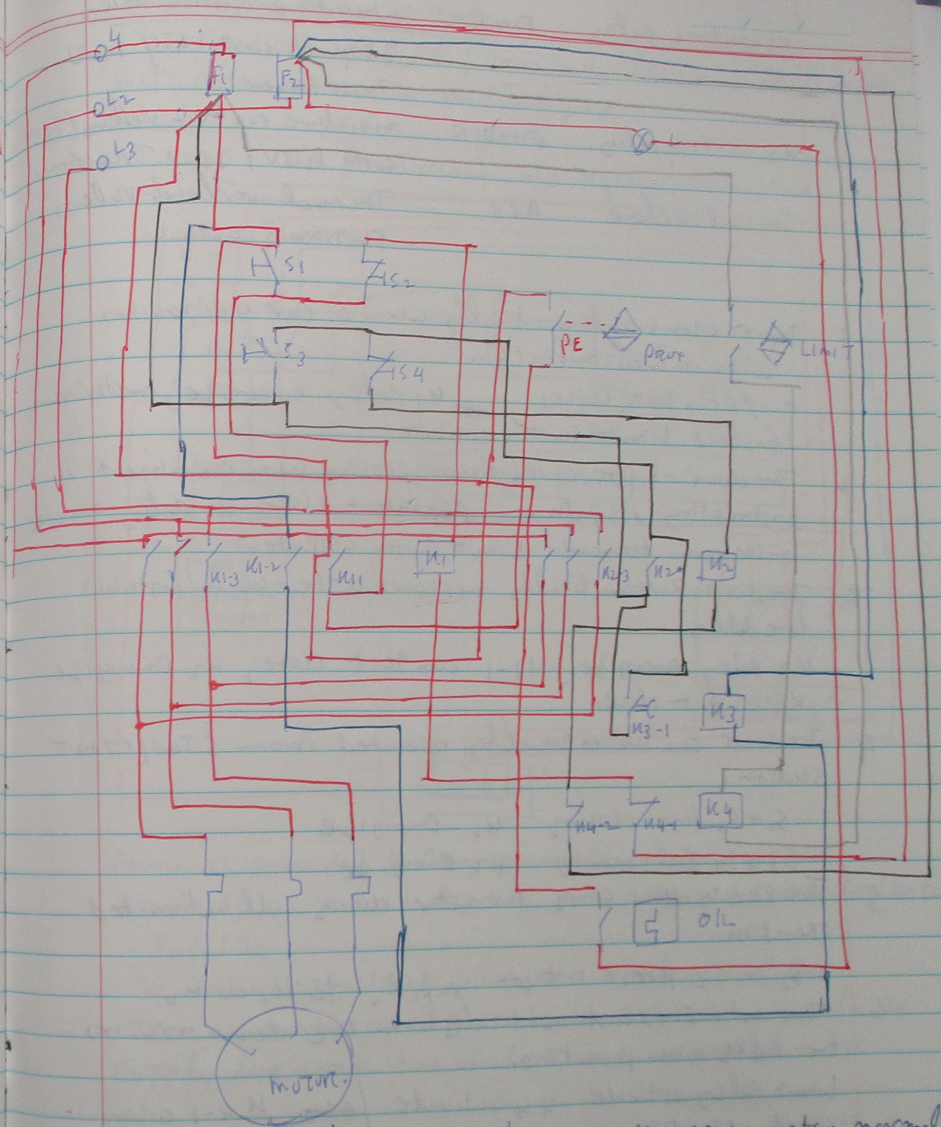 L1
L2
L3
F1
F2
L
S1
S2
PE
PROX
LIMIT
S3
S4
K1-3
K1-2
K11
K1
K2-3
K2
K2
K3-1
K3
K4-2
K4-1
K4
OIL
MOTOR.